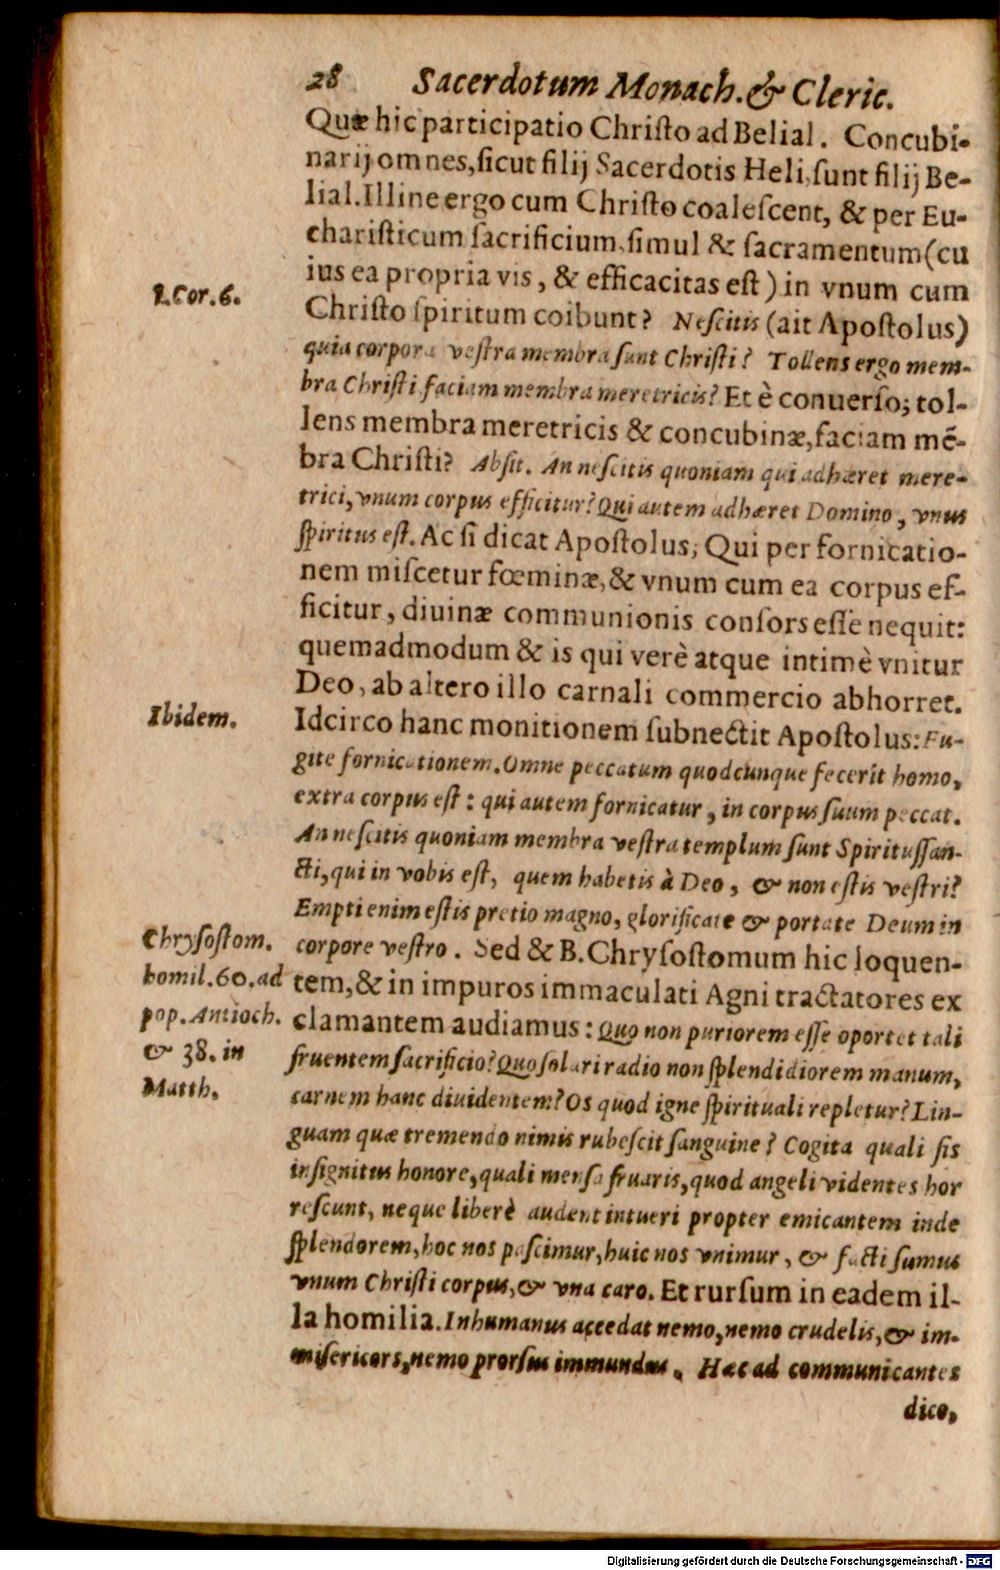 28 Sacerdotum Monach. & Cleric.
Quæ hic participatio Christo ad Belial. Concubi-
narij omnes, sicut filij Sacerdotis Heli, sunt filij Be-
lial. Illine ergo cum Christo coalescent, & per Eu-
charisticum sacrificium, simul & sacramentum (cu
ius ea propria vis, & efficacitas est) in vnum cum
1. Cor. 6.
Christo spiritum coibunt? Nescitis (ait Apostolus)
quia corpora vestra membra sunt Christi? Tollens ergo mem-
bra Christi faciam membra meretricis? Et è conuerso; tol-
lens membra meretricis & concubinæ, faciam mē-
bra Christi? Absit. An nescitis quoniam qui adhæret mere-
trici, vnum corpus efficitur? Qui autem adhæret Domino, vnus
spiritus est. Ac si dicat Apostolus; Qui per fornicatio-
nem miscetur fœminæ, & vnum cum ea corpus ef-
ficitur, diuinæ communionis consors esse nequit:
quemadmodum & is qui verè atque intimè vnitur
Deo, ab altero illo carnali commercio abhorret.
Ibidem.
Idcirco hanc monitionem subnectit Apostolus: Fu-
gite fornicationem. Omne peccatum quodcunque fecerit homo,
extra corpus est: qui autem fornicatur, in corpus suum peccat.
An nescitis quoniam membra vestra templum sunt Spiritus san-
cti, qui in vobis est, quem habetis à Deo, & non estis vestri?
Empti enim estis pretio magno, glorificate & portate Deum in
Chrysostom.
homil. 60. ad
pop. Antioch.
& 38. in
Matth.
corpore vestro. Sed & B. Chrysostomum hic loquen-
tem, & in impuros immaculati Agni tractatores ex
clamantem audiamus: Quo non puriorem esse oportet tali
fruentem sacrificio? Quo solari radio non splendidiorem manum,
carnem hanc diuidentem? Os quod igne spirituali repletur? Lin-
guam quæ tremendo nimis rubescit sanguine? Cogita quali sis
insignitus honore, quali mensa fruaris, quod angeli videntes hor
rescunt, neque liberè audent intueri propter emicantem inde
splendorem, hoc nos pascimur, huic nos vnimur, & facti sumus
vnum Christi corpus, & vna caro. Et rursum in eadem il-
la homilia. Inhumanus accedat nemo, nemo crudelis, & im-
misericors, nemo prorsus immundus. Hæc ad communicantes
dico,
Digitalisierung gefördert durch die Deutsche Forschungsgemeinschaft - DFG